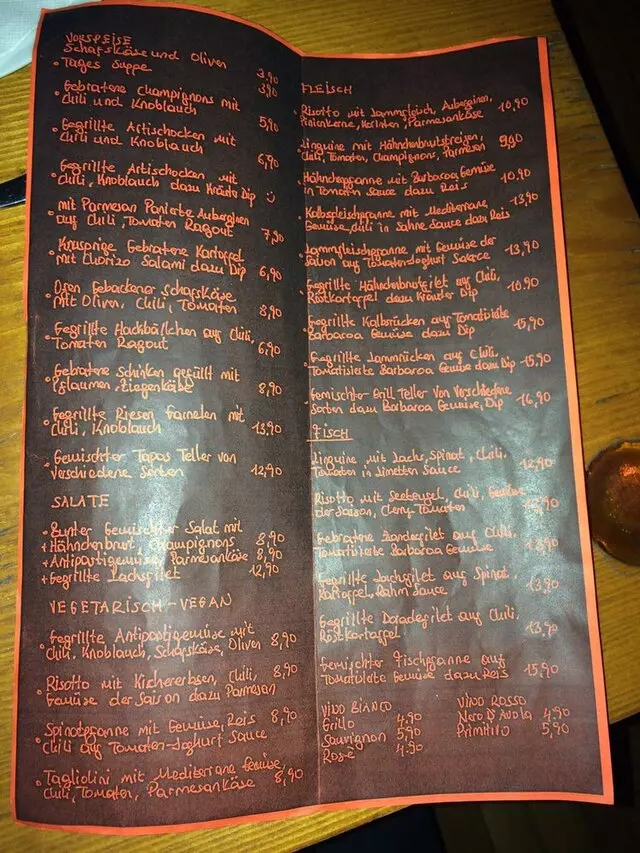 VORSPEISE
Schafskäse und Oliven 3,90
• Tages Suppe 3,90
• Gebratene Champignons mit
Chili und Knoblauch 5,90
• Gegrillte Artischocken mit
Chili und Knoblauch 6,90
• Gegrillte Artischocken mit
Chili, Knoblauch dazu Kräuter Dip
• mit Parmesan Panierte Auberginen
auf Chili, Tomaten Ragout 7,90
• Knusprige Gebratene Kartoffel
mit Chorizo Salami dazu Dip 6,90
• Ofen Gebackener Schafskäse
mit Oliven, Chili, Tomaten 8,90
• Gegrillte Hackbällchen auf Chili,
Tomaten Ragout 6,90
• Gebratene Schinken gefüllt mit
Pflaumen, Ziegenkäse 8,90
• Gegrillte Riesen Garnelen mit
Chili, Knoblauch 13,90
• Gemischter Tapas Teller von
verschiedene Sorten 12,90
SALATE
• Bunter Gemischter Salat mit
+ Hähnchenbrust, Champignons 8,90
+ Antipastigemüse, Parmesankäse 8,90
+ Gegrillte Lachsfilet 12,90
VEGETARISCH - VEGAN
• Gegrillte Antipastigemüse mit
Chili, Knoblauch, Schafskäse, Oliven 8,90
• Risotto mit Kichererbsen, Chili, 8,90
Gemüse der Saison dazu Parmesan
• Spinatpfanne mit Gemüse, Reis 8,90
Chili auf Tomaten-Joghurt Sauce
• Tagliolini mit Mediterrane Gemüse,
Chili, Tomaten, Parmesankäse 8,90
FLEISCH
• Risotto mit Lammfleisch, Auberginen, 10,90
Pinienkerne, Parmesankäse
• Linguine mit Hähnchenbruststreifen, 9,90
Chili, Tomaten, Champignons, Parmesan
• Hähnchenpfanne mit Barbaroa Gemüse 10,90
in Tomaten Sauce dazu Reis
• Kalbsfleischpfanne mit Mediterrane 13,90
Gemüse, Chili in Sahne Sauce dazu Reis
• Lammfleischpfanne mit Gemüse der 13,90
Saison auf Tomaten-Joghurt Sauce
• Gegrillte Hähnchenbrustfilet auf Chili, 10,90
Röstkartoffel dazu Kräuter Dip
• Gegrillte Kalbsrücken auf Tomatisierte 15,90
Barbaroa Gemüse dazu Dip
• Gegrillte Lammrücken auf Chili,
Tomatisierte Barbaroa Gemüse dazu Dip 15,90
• Gemischter Grill Teller von Verschiedene
Sorten dazu Barbaroa Gemüse, Dip 16,90
FISCH
Linguine mit Lachs, Spinat, Chili,
Tomaten in Limetten Sauce 12,90
Risotto mit Seeteufel, Chili, Gemüse
der Saison, Cherry Tomaten
Gebratene Zanderfilet auf Chili,
Tomatisierte Barbaroa Gemüse 13,90
Gegrillte Lachsfilet auf Spinat,
Kartoffel, Rahm Sauce 13,90
Gegrillte Doradefilet auf Chili,
Röstkartoffel 13,90
Gemischter Fischpfanne auf
Tomatisierte Gemüse dazu Reis 15,90
VINO BIANCO
Grillo 4,90
Sauvignon 5,90
Rose 4,90
VINO ROSSO
Nero D'Avola 4,90
Primitivo 5,90